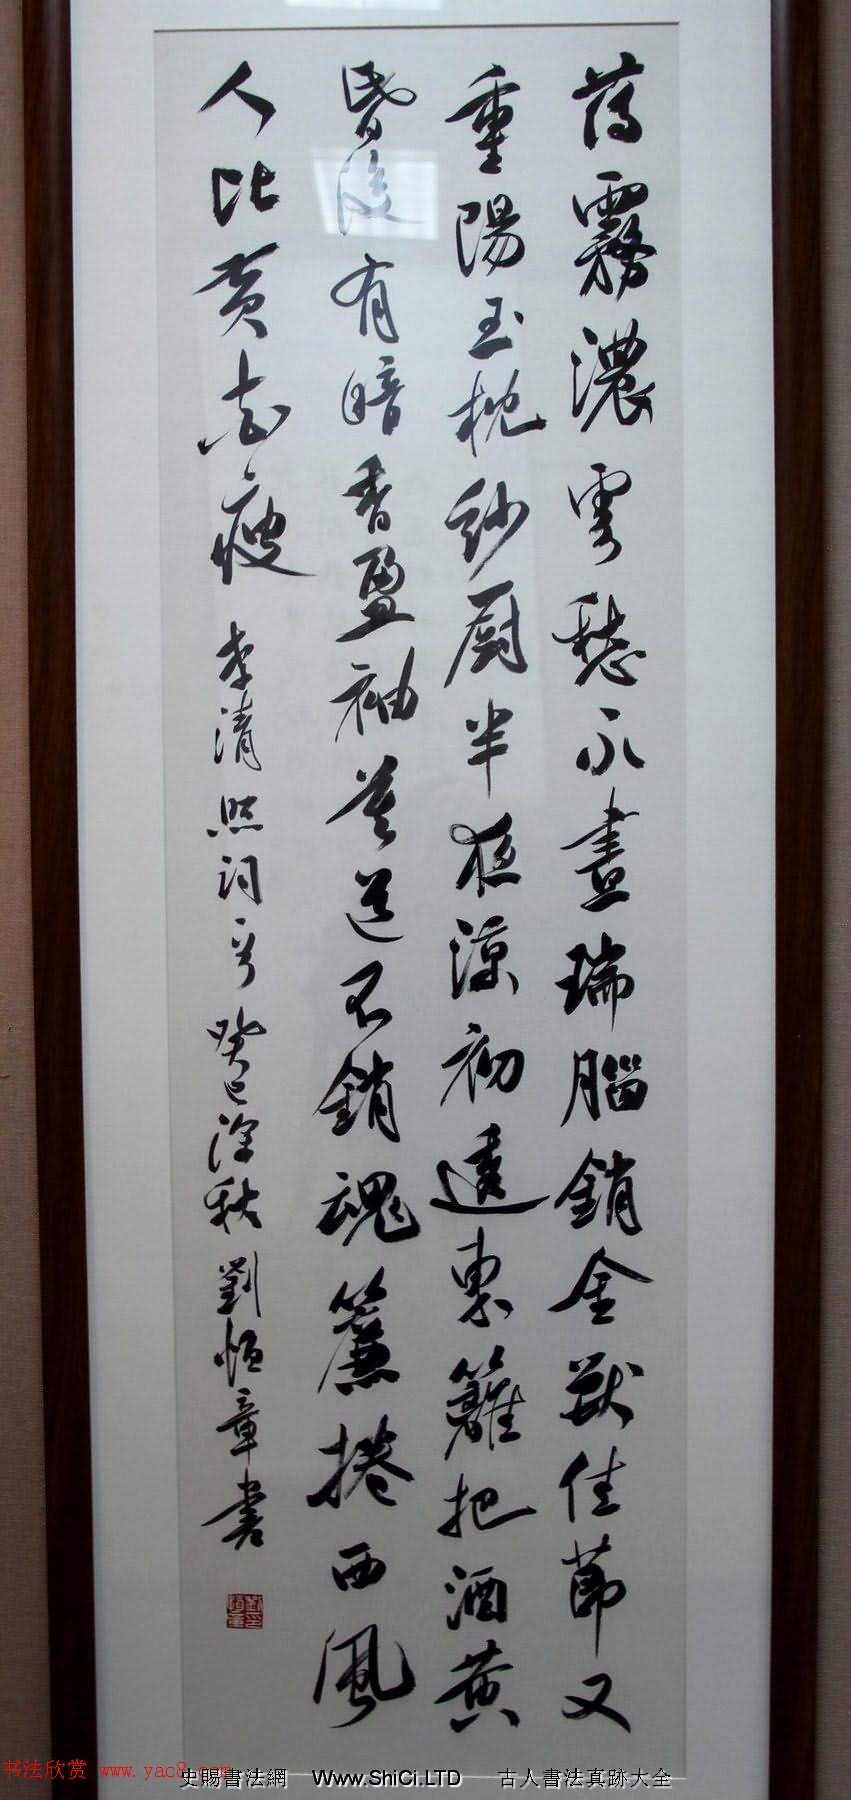 薄霧濃雲愁永晝瑞腦銷金獸佳節又
重陽玉枕紗厨半夜涼初透東籬把酒黃
昏後有暗香盈袖莫道不銷魂簾捲西風
人比黃花瘦 李清照詞一首 癸巳深秋 劉恒章書
书法欣赏 www.yac8.com
史賜書法網 Www.ShiCi.LTD 古人書法真跡大全